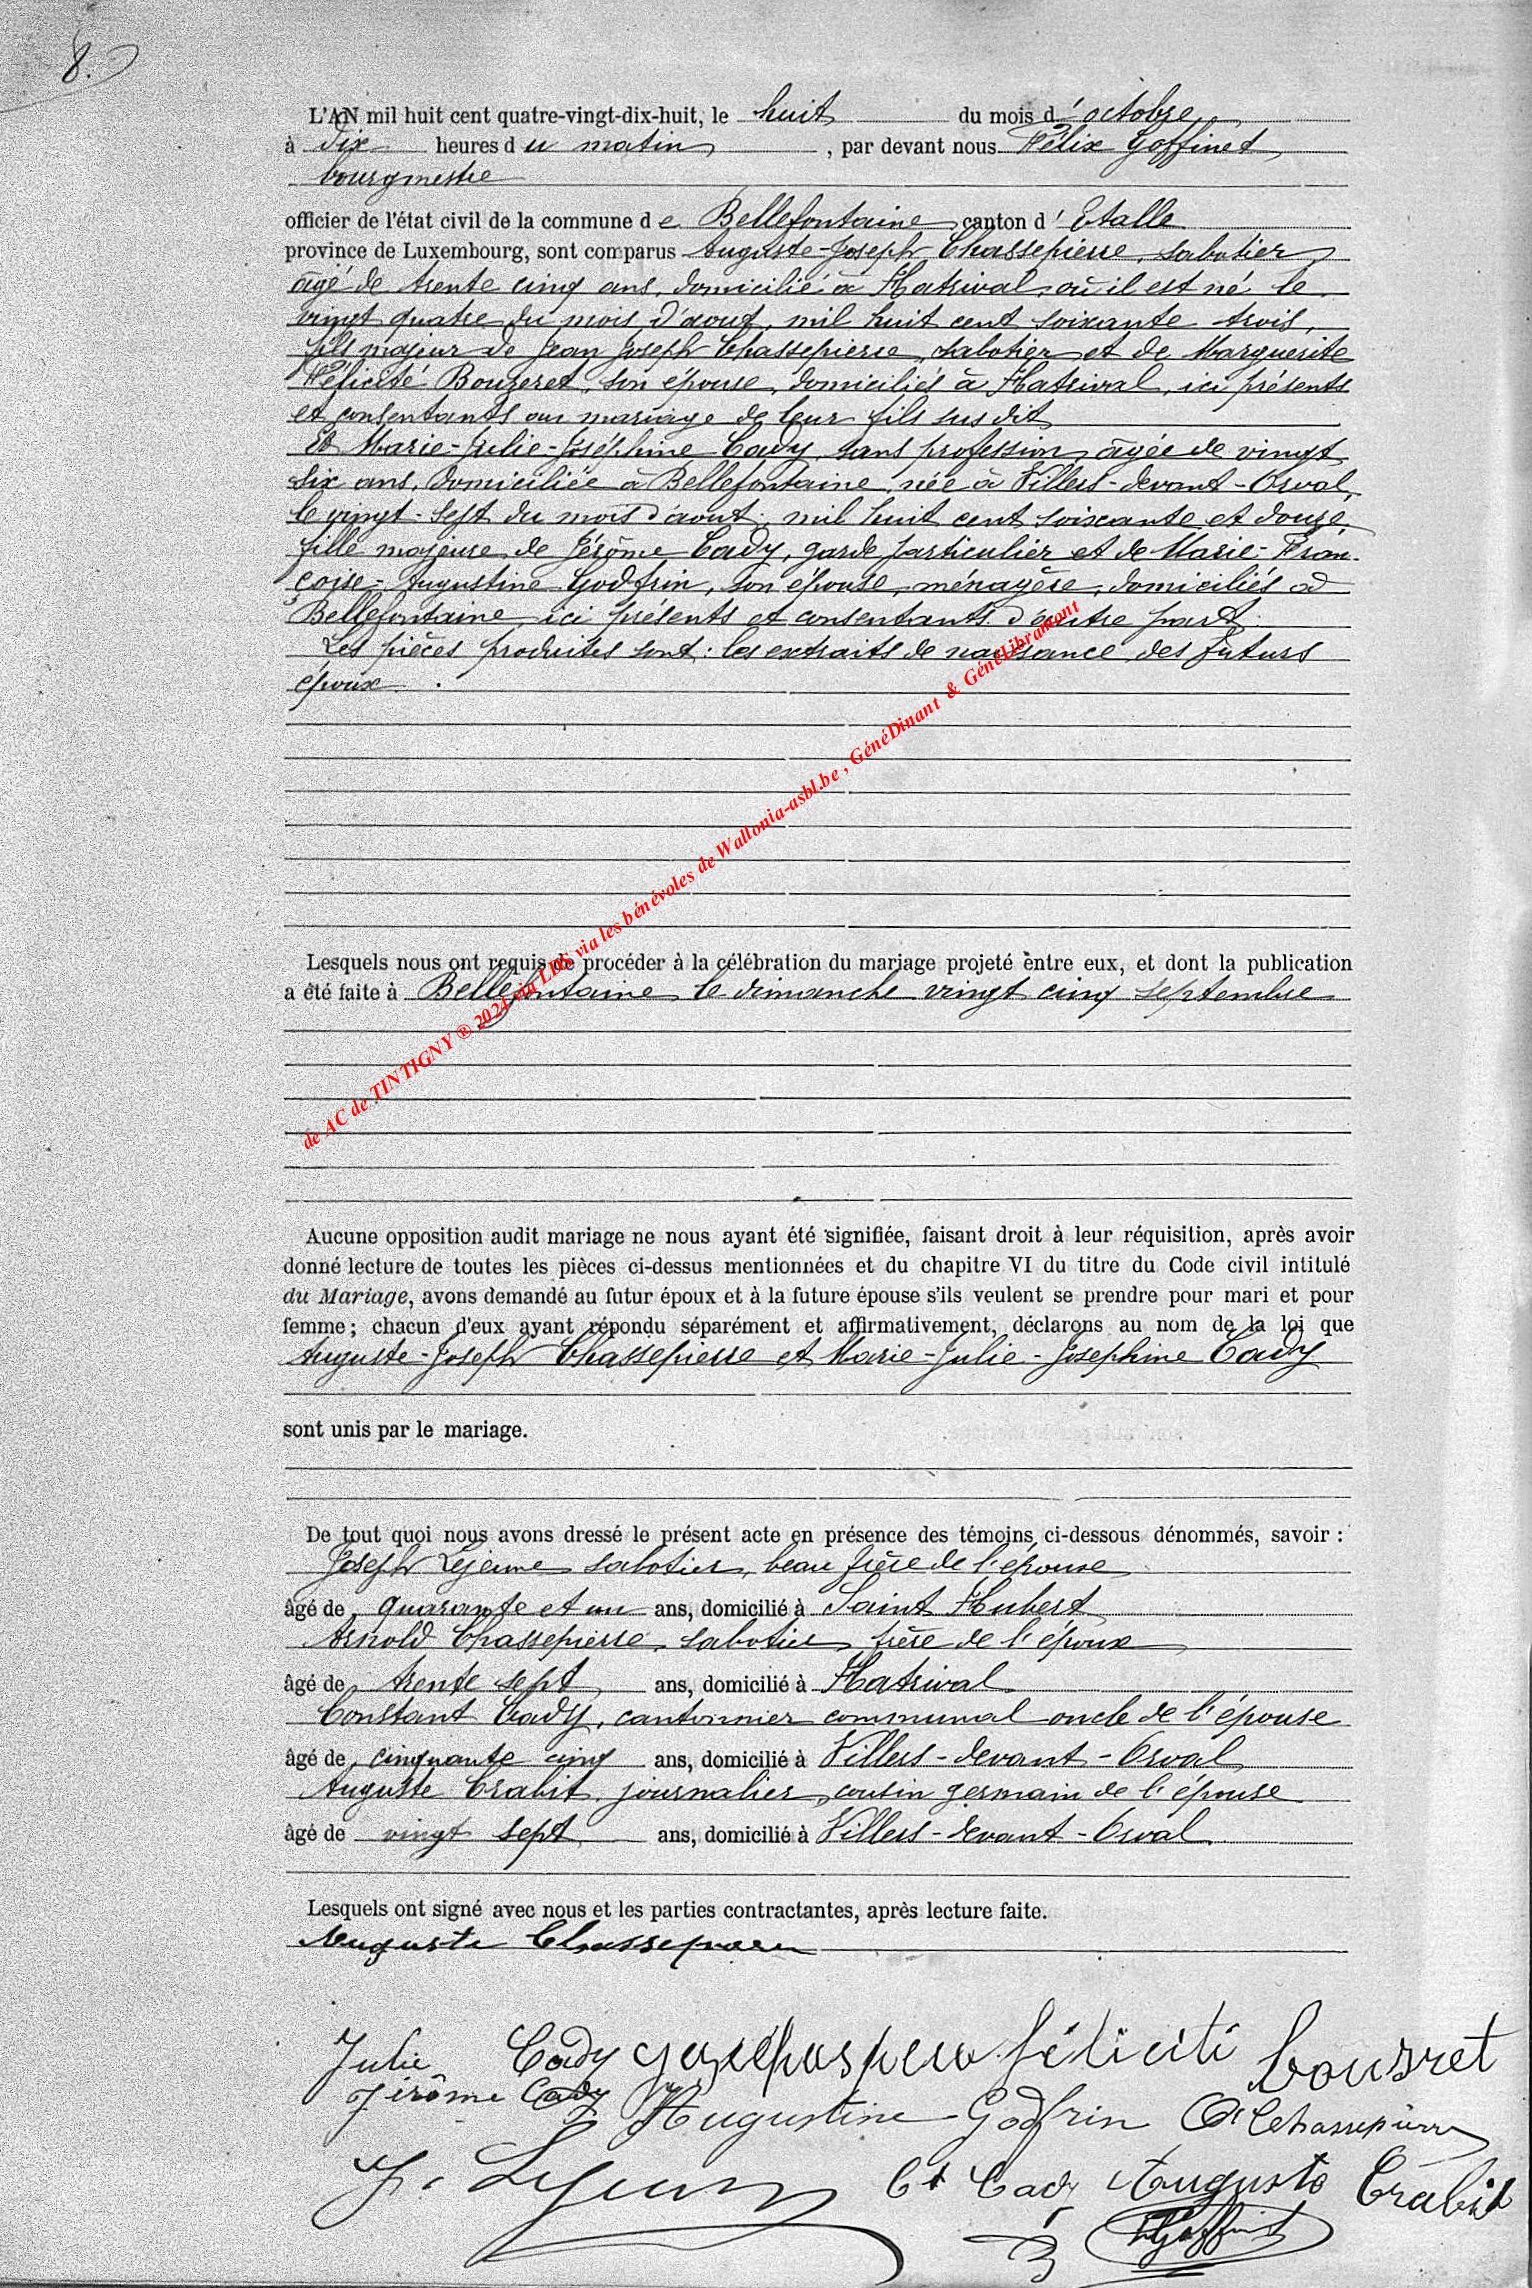 8.
L'AN mil huit cent quatre-vingt-dix-huit, le huit du mois d'octobre
à dix heures du matin, par devant nous Félix Goffinet
bourgmestre
officier de l'état civil de la commune de Bellefontaine canton d'Etalle
province de Luxembourg, sont comparus Auguste-Joseph Chassepierre, sabotier,
âgé de trente cinq ans, domicilié à Hatrival, où il est né le
vingt quatre du mois d'aout, mil huit cent soixante trois,
fils majeur de Jean Joseph Chassepierre, sabotier et de Marguerite
Félicité Bouzeret, son épouse, domiciliés à Hatrival, ici présents
et consentants au mariage de leur fils sus dit
Et Marie-Julie-Joséphine Cady, sans profession, âgée de vingt
six ans, domiciliée à Bellefontaine, née à Villers-devant-Orval,
le vingt-sept du mois d'aout, mil huit cent soixante et douze,
fille majeure de Jérôme Cady, garde particulier et de Marie-Fran-
çoise-Augustine Godfrin, son épouse, ménagère, domiciliés à
Bellefontaine, ici présents et consentants d'autre part.
Les pièces produites sont: les extraits de naissance des futurs
époux.
de AC de TINTIGNY ® 2024 via LDS via les bénévoles de Wallonia-asbl.be , GénéDinant & GénéLibramont
Lesquels nous ont requis de procéder à la célébration du mariage projeté entre eux, et dont la publication
a été faite à Bellefontaine le dimanche vingt cinq septembre
Aucune opposition audit mariage ne nous ayant été signifiée, faisant droit à leur réquisition, après avoir
donné lecture de toutes les pièces ci-dessus mentionnées et du chapitre VI du titre du Code civil intitulé
du Mariage, avons demandé au futur époux et à la future épouse s'ils veulent se prendre pour mari et pour
femme; chacun d'eux ayant répondu séparément et affirmativement, déclarons au nom de la loi que
Auguste-Joseph Chassepierre et Marie-Julie-Josephine Cady
sont unis par le mariage.
De tout quoi nous avons dressé le présent acte en présence des témoins ci-dessous dénommés, savoir :
Joseph Lejeune sabotier, beau frère de l'épouse
âgé de quarante et un ans, domicilié à Saint Hubert
Arnold Chassepierre, sabotier, frère de l'époux
âgé de trente sept ans, domicilié à Hatrival
Constant Cady, cantonnier communal oncle de l'épouse
âgé de cinquante cinq ans, domicilié à Villers-devant-Orval
Auguste Crabit, journalier, cousin germain de l'épouse
âgé de vingt sept ans, domicilié à Villers-devant-Orval
Lesquels ont signé avec nous et les parties contractantes, après lecture faite.
Auguste Chassepierre
Julie Cady félicité bousret
Jérôme Cady Augustine Godfrin Chassepierre
J. Lejeune Ct Cady Auguste Crabit
Goffinet